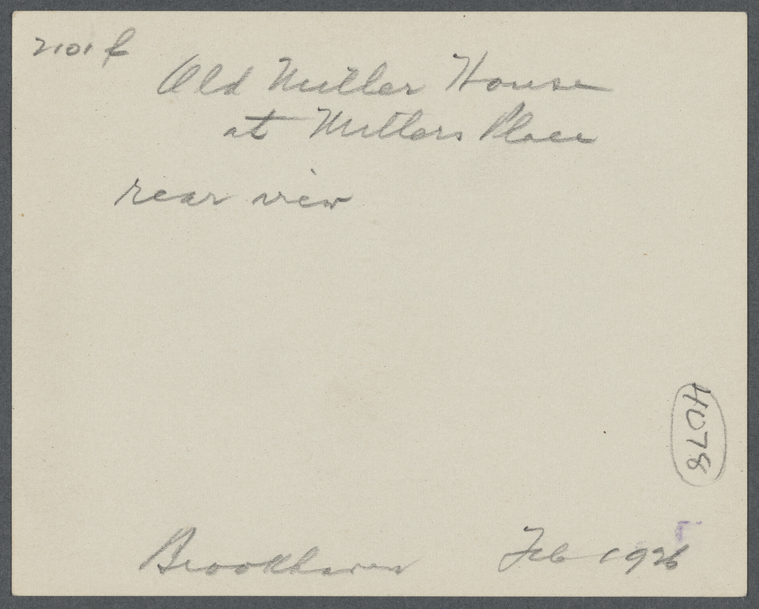 2101 f
Old Miller House
at Millers Place
rear view
4078
Brookhaven Feb 1926